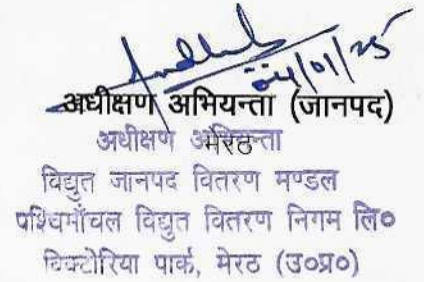 04/01/25
अधीक्षण अभियन्ता (जानपद)
मेरठ
अधीक्षण अभियन्ता
विद्युत जानपद वितरण मण्डल
पश्चिमाँचल विद्युत वितरण निगम लि०
विक्टोरिया पार्क, मेरठ (उ०प्र०)